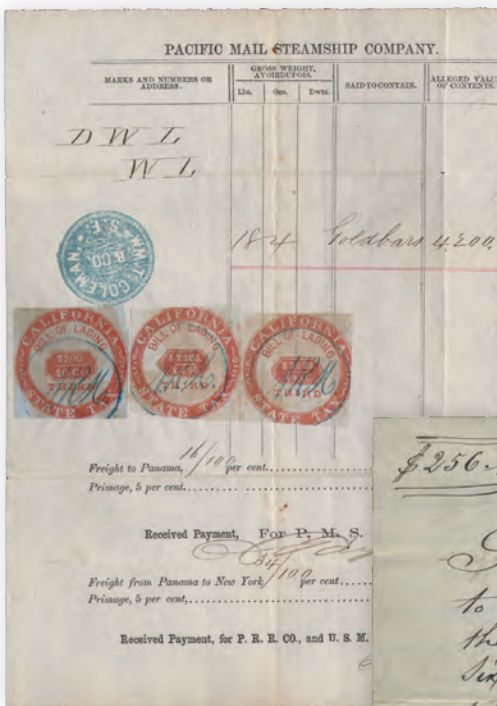 PACIFIC MAIL STEAMSHIP COMPANY.
MARKS AND NUMBERS OR ADDRESS.
GROSS WEIGHT, AVOIRDUPOIS.
Lbs. Ozs. Dwts.
SAID TO CONTAIN.
ALLEGED VALU
OF CONTENTS.
D W L
W L
WM. T. COLEMAN & CO. S. F.
184 Goldbars 4.200.
CALIFORNIA
BILL OF LADING
THIRD
STATE TAX
CALIFORNIA
BILL OF LADING
THIRD
STATE TAX
CALIFORNIA
BILL OF LADING
THIRD
STATE TAX
Freight to Panama, 16/100 per cent.
Primage, 5 per cent.
Received Payment, For P. M. S.
Freight from Panama to New York 34/100 per cent
Primage, 5 per cent,
Received Payment, for P. R. R. CO., and U. S. M.
$256.
to
the